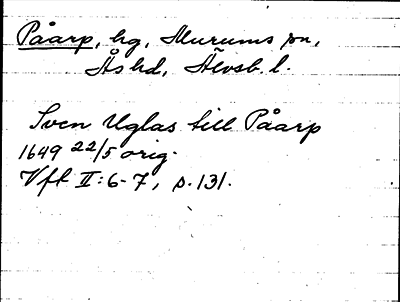 Påarp, hg, Murums sn,
Ås hd, Älvsb. l.
Sven Uglas till Påarp
1649 22/5 orig.
Vft II:6-7, s. 131.